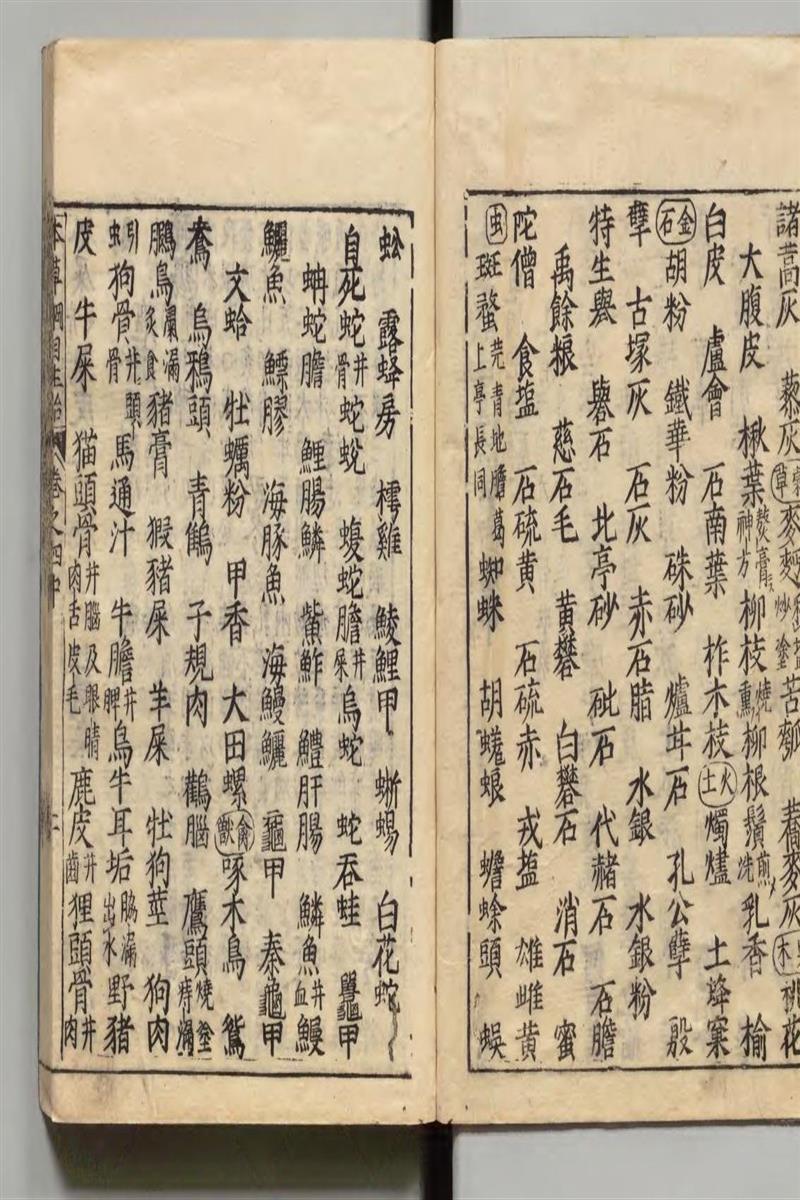 諸蒿灰 藜灰 麥麪 苦瓠 蕎麥灰 桃花
大腹皮 楸葉神方熬膏 柳枝燒熏 柳根鬚煎洗 乳香 榆
白皮 盧會 石南葉 柞木枝 火土 燭燼 土蜂窠
金石 胡粉 鐵華粉 硃砂 爐甘石 孔公孽 殷
孽 古塚灰 石灰 赤石脂 水銀 水銀粉
特生礜 礜石 北亭砂 砒石 代赭石 石膽
禹餘粮 慈石毛 黄礬 白礬石 消石 蜜
陀僧 食塩 石硫黄 石硫赤 戎塩 雄雌黄
虫 斑蝥芫青地膽葛上亭長同 蜘蛛 胡蜣蜋 蟾蜍頭 蜈
蚣 露蜂房 樗雞 鯪鯉甲 蜥蜴 白花蛇
自死蛇并骨 蛇蛻 蝮蛇膽并屎 烏蛇 蛇吞蛙 鼉甲
蚺蛇膽 鯉腸鱗 鮆鮓 鱧肝腸 鱗魚并血 鰻
鱺魚 鰾膠 海豚魚 海鰻鱺 龜甲 秦龜甲
文蛤 牡蠣粉 甲香 大田螺 禽獸 啄木鳥 鴛
鴦 烏鴉頭 青鶴 子規肉 鸛腦 鷹頭燒塗痔瘺
鵩鳥瘰瘺炙食 豬膏 猳豬屎 羊屎 牡狗莖 狗肉
引虫 狗骨并頭骨 馬通汁 牛膽并脾 烏牛耳垢脇漏出水 野豬
皮 牛屎 猫頭骨并腦及眼睛肉舌皮毛 鹿皮并齒 狸頭骨并肉